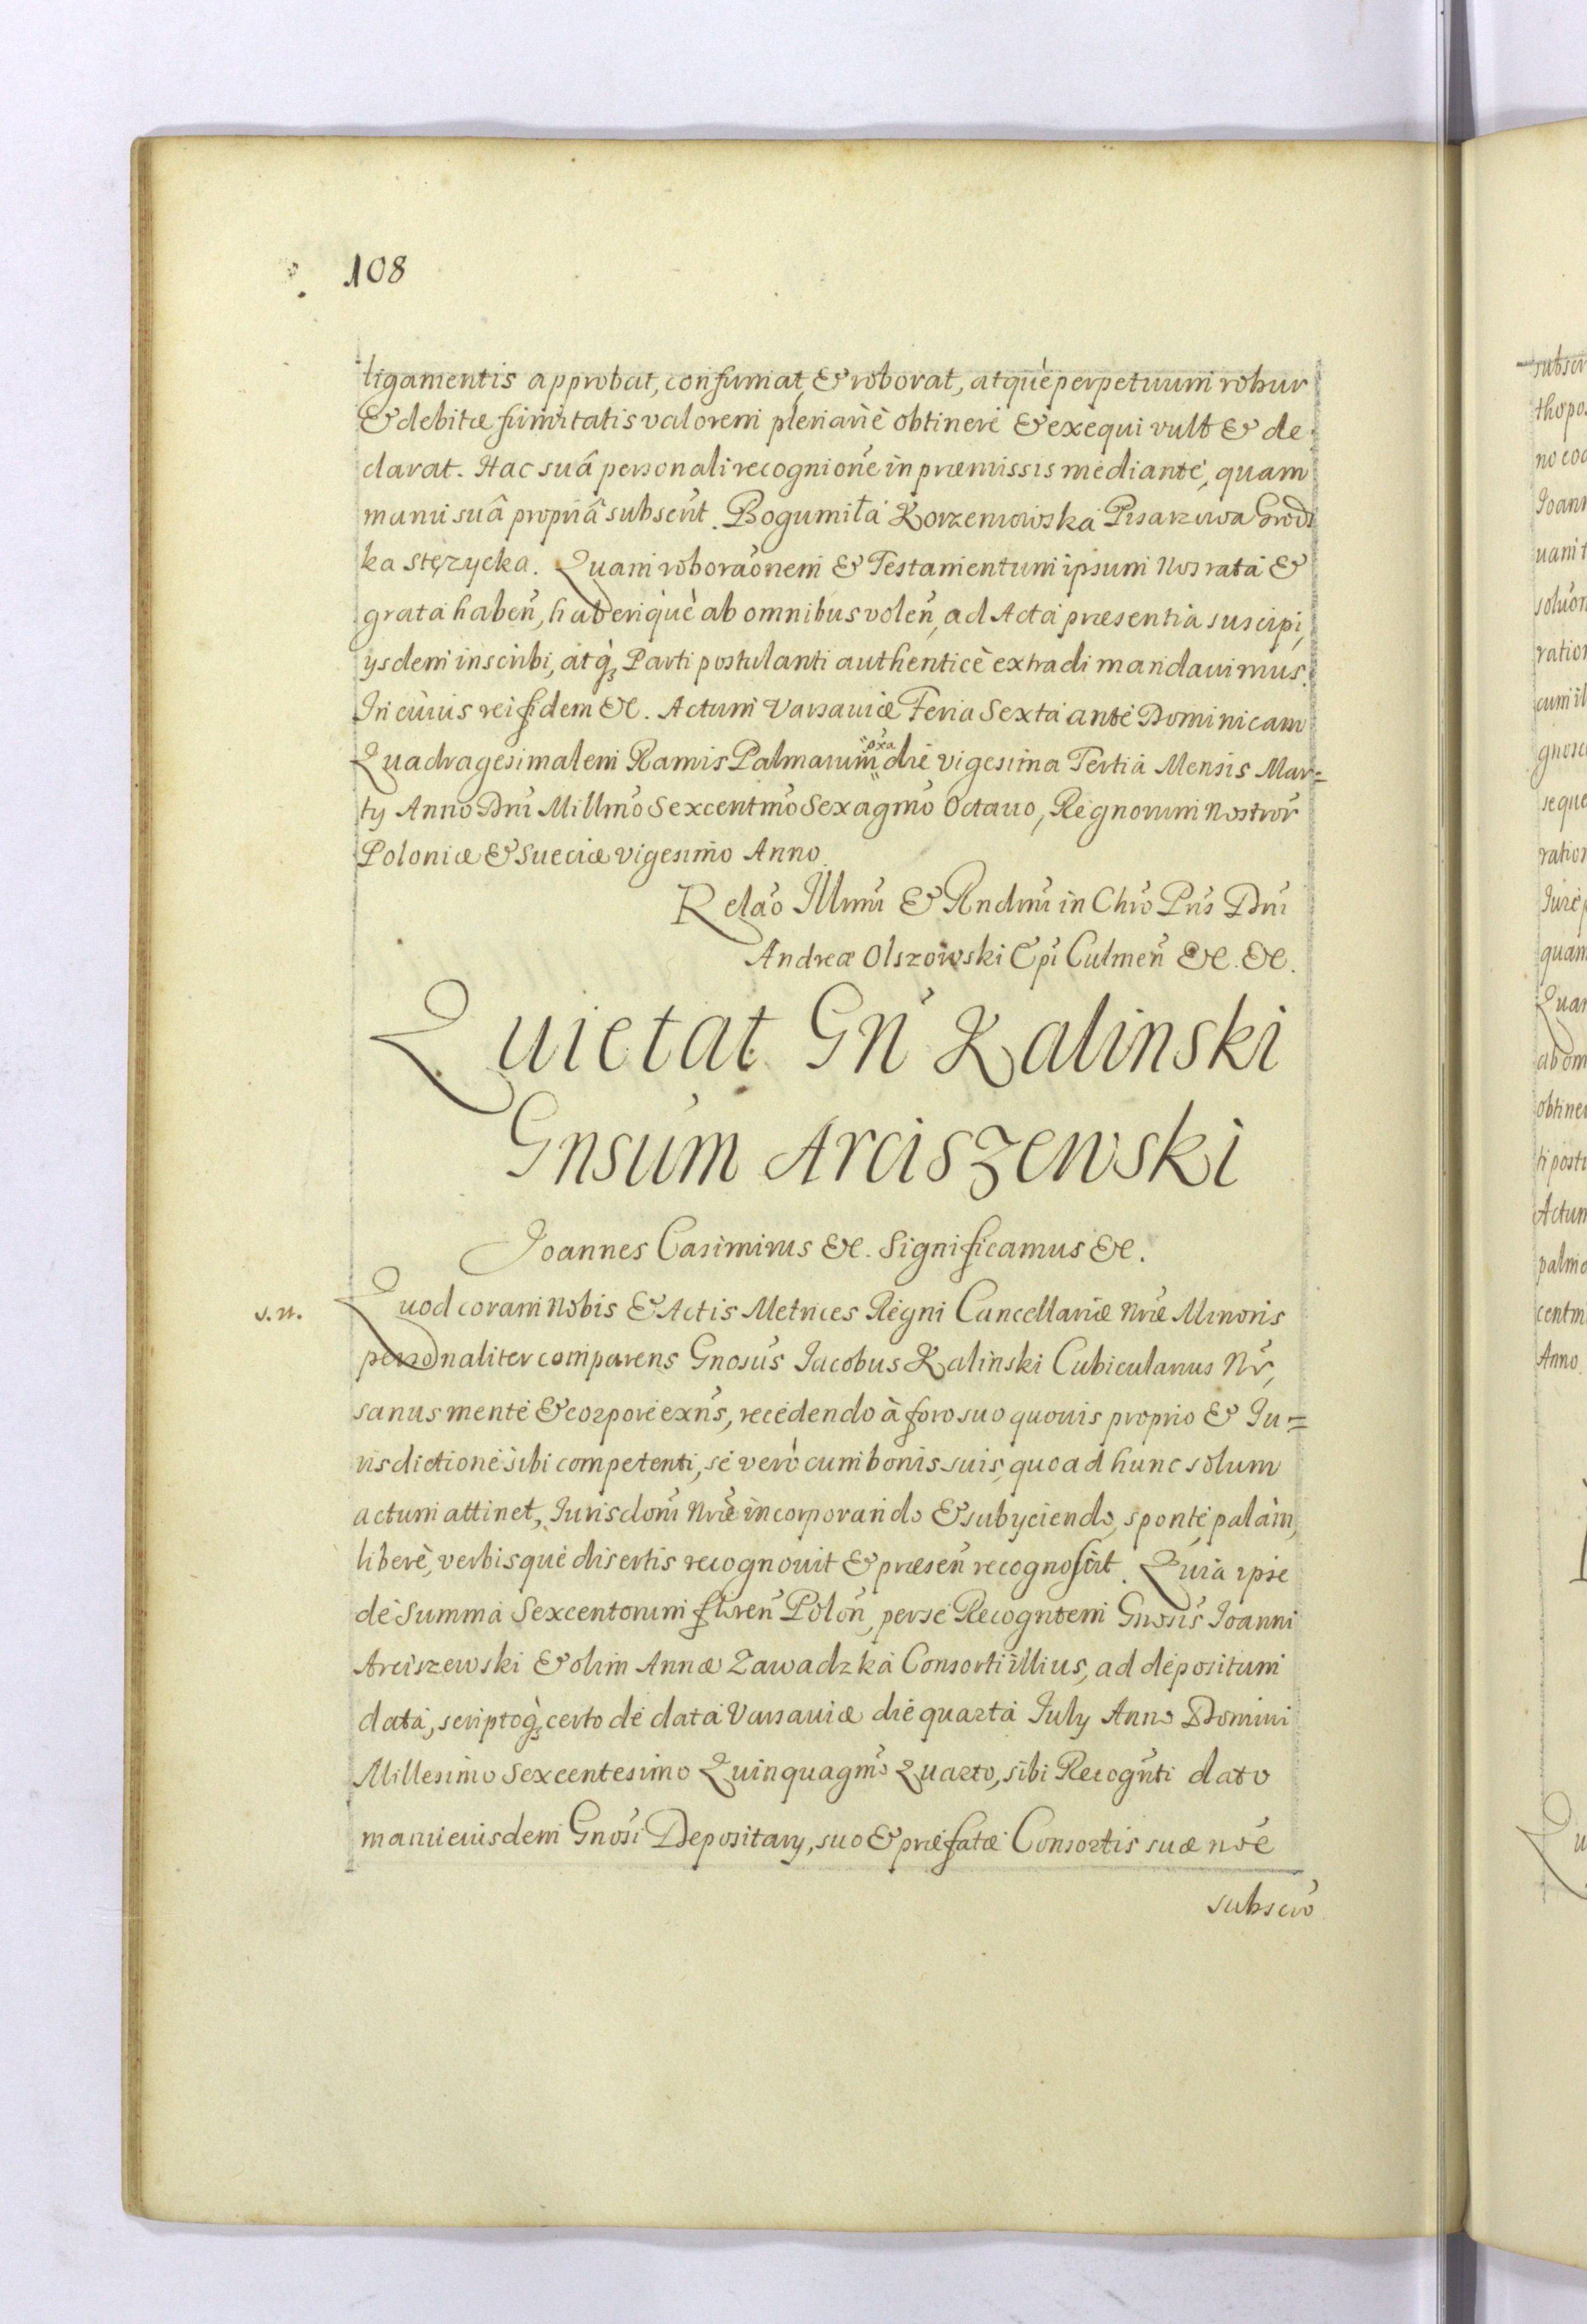 108
ligamentis approbat, confirmat, & roborat, atquè perpetuum robur
& debitæ firmitatis valorem plenariè obtinere & exequi vult & de-
clarat. Hac suâ personali recognione in præmissis mediante, quam
manu suâ propriâ subscrit. Bogumiła Korzeniowska Pisarzowa Grodz
ka stęzycka. Quam roboraonem & Testamentum ipsum Nos rata &
grata haben, haberiquè ab omnibus volen, ad Acta præsentia suscipi,
ysdem inscribi, atq; Parti postulanti authenticè extradi mandauimus.
In cuius rei fidem &c. Actum Varsauiæ Feria Sexta ante Dominicam
Quadragesimalem Ramis Palmarum pxa die vigesima Tertia Mensis Mar=
ty Anno Dni Millmo Sexcentmo Sexagmo Octauo, Regnorum Nostror
Poloniæ & Sueciæ vigesimo Anno.
Relao Illmi & Rndmi in Chro Pris Dni
Andreæ Olszowski Epi Culmen &c. &c.
Quietat Gn Kalinski
Gnsum Arciszewski
Joannes Casimirus &c. Significamus &c.
v. n.
Quod coram Nobis & Actis Metrices Regni Cancellariæ Nræ Minoris
personaliter comparens Gnosus Jacobus Kalinski Cubicularius Nr,
sanus mente & corpore exns, recedendo à foro suo quouis proprio & Ju=
risdictione sibi competenti, se verò cum bonis suis, quoad hunc solum
actum attinet, Jurisdoni Nræ incorporando & subyciendo, sponte palàm,
liberè, verbisque disertis recognouit & præsen recognoscit. Quia ipse
de Summa Sexcentorum floren Polon, per se Recogntem Gnosis Joanni
Arciszewski & olim Annæ Zawadzka Consorti illius, ad depositum
data, scriptoq; certo de data Varsauiæ die quarta July Anno Domini
Millesimo Sexcentesimo Quinquagmo Quarto, sibi Recognti dato
manu eiusdem Gnosi Depositary, suo & præfatæ Consortis suæ noe
subscro